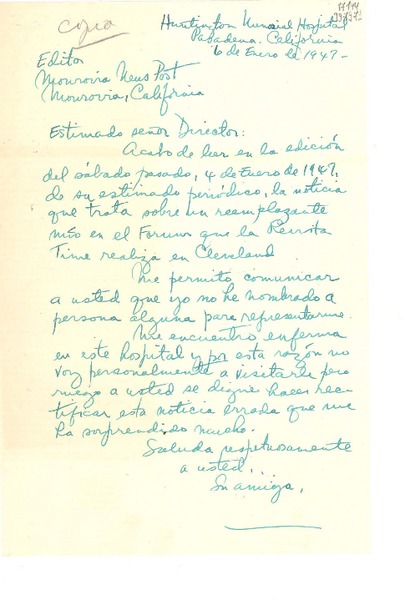 copia
Huntington Memorial Hospital
Pasadena. California
6 de Enero de 1947-
Editor
Monrovia News Post
Monrovia, California
Estimado señor Director:
Acabo de leer en la edición
del sábado pasado, 4 de Enero de 1947,
de su estimado periódico, la noticia
que trata sobre un reemplazante
mío en el Forum que la Revista
Time realiza en Cleveland.
Me permito comunicar
a usted que yo no he nombrado a
persona alguna para representarme.
Me encuentro enferma
en este hospital y por esta razón no
voy personalmente a visitarle pero
ruego a usted se digne hacer rec-
tificar esta noticia errada que me
ha sorprendido mucho.
Saluda respetuosamente
a usted...
Su amiga,